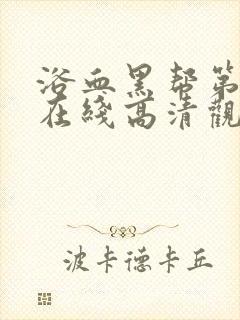 浴血黑帮第
在綫高清觀
波卡德卡丘